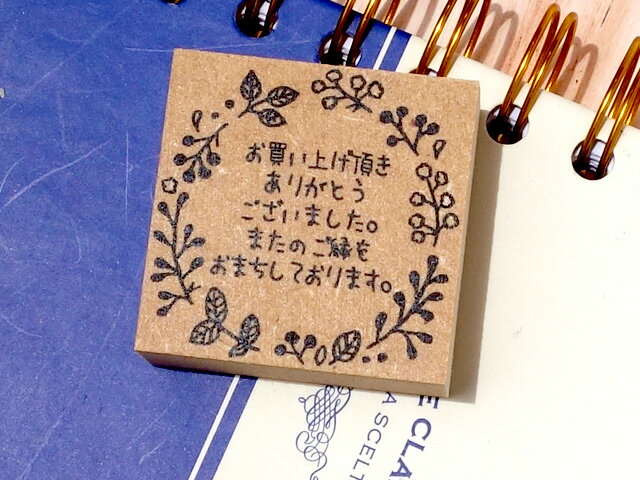 お買い上げ頂き
ありがとう
ございました。
またのご縁を
おまちしております。
E CLA
A SCELT